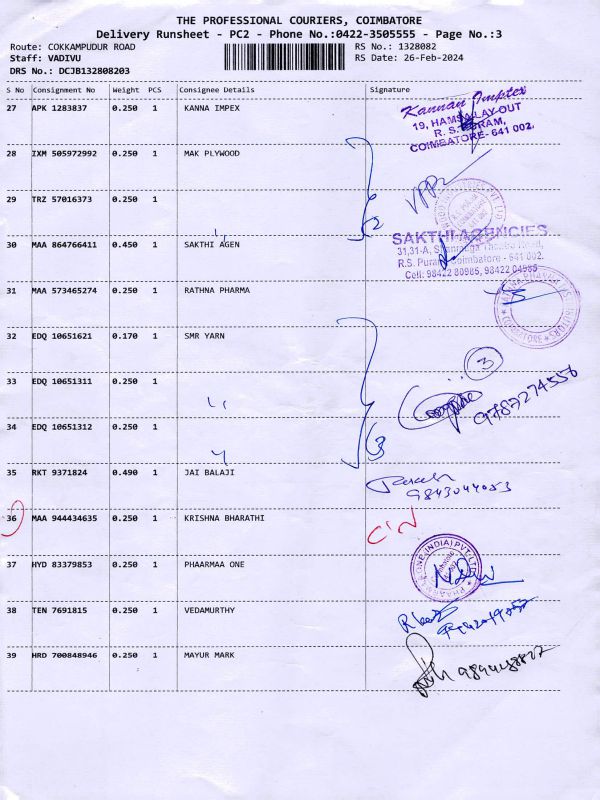 THE PROFESSIONAL COURIERS, COIMBATORE
Delivery Runsheet - PC2 - Phone No.:0422-3505555 - Page No.:3
Route: COKKAMPUDUR ROAD RS No.: 1328082
Staff: VADIVU RS Date: 26-Feb-2024
DRS No.: DCJB132808203
S No Consignment No Weight PCS Consignee Details Signature
27 APK 1283837 0.250 1 KANNA IMPEX
Kannan Imptex
19, HAMSA LAY-OUT
R. S. PURAM,
COIMBATORE - 641 002.
28 IXM 505972992 0.250 1 MAK PLYWOOD
29 TRZ 57016373 0.250 1 ,, 2
30 MAA 864766411 0.450 1 SAKTHI AGEN
SAKTHI AGENCIES
31,31-A,
R.S. Puram, Coimbatore - 641 002.
Cell: 98422 80985, 98422 04985
31 MAA 573465274 0.250 1 RATHNA PHARMA
32 EDQ 10651621 0.170 1 SMR YARN
3
33 EDQ 10651311 0.250 1 ,,
9787274556
34 EDQ 10651312 0.250 1 ,, 3
35 RKT 9371824 0.490 1 JAI BALAJI
9843044053
36 MAA 944434635 0.250 1 KRISHNA BHARATHI
37 HYD 83379853 0.250 1 PHAARMAA ONE
38 TEN 7691815 0.250 1 VEDAMURTHY
39 HRD 700848946 0.250 1 MAYUR MARK